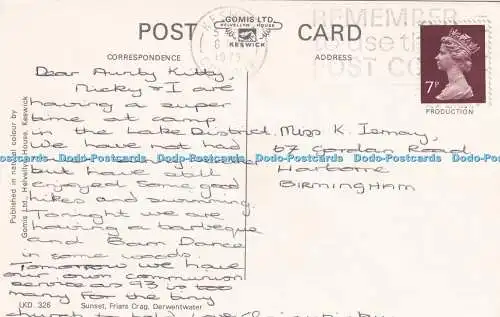 POST CARD
GOMIS LTD.
HELVELLYN HOUSE
KESWICK
CORRESPONDENCE
ADDRESS
REMEMBER
to use the
POST CO
1975
7P
PRODUCTION
Dear Aunty Kitty,
Nicky & I are
having a super
time at camp
in the Lake District.
We have not had
but have still
enjoyed some good
hikes and swimming.
Tonight we are
having a barbeque
and Barn Dance
in some woods.
Tomorrow we have
our own communion
service as 93 is too
many for the tiny
church to hold. Love
Miss K.
67 Gordon Road
Harborne
BIRMINGHAM
Published in natural colour by
Gomis Ltd., Helvellyn House, Keswick
LKD. 326 Sunset, Friars Crag, Derwentwater
Dodo-Postcards Dodo-Postcards Dodo-Postcards Dodo-Postcards Dodo-Postcards